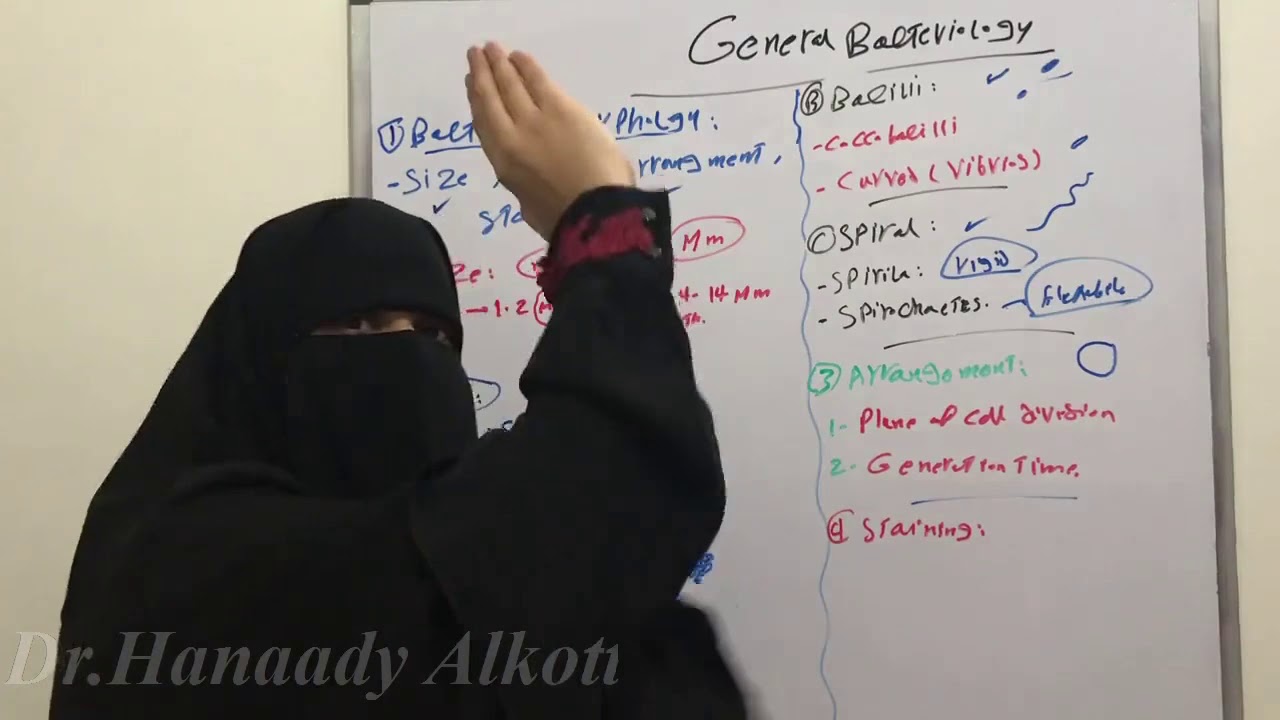 General Bacteriology
① Bact phology:
- Size , rrangment,
Sta
ze: Mm
→ 1.2 4-14 Mm
Ⓑ Bacilii:
- Coccobacilli
- Curved (Vibrios)
Ⓒ Spiral:
- Spirila: rigid
- Spirochaetes.
③ Arrangement:
1- Plane of cell division
2- Generation Time.
④ Staining:
Dr.Hanaady Alkot